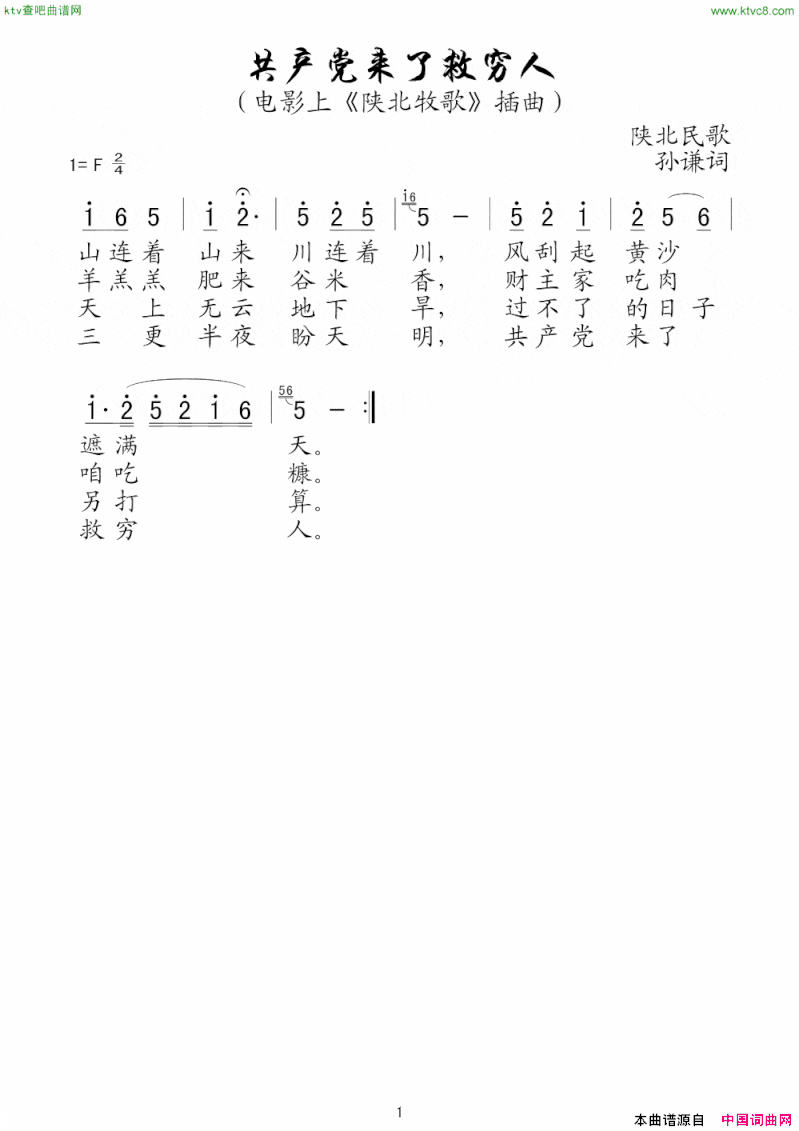 ktv查吧曲谱网 www.ktvc8.com
共产党来了救穷人
（电影上《陕北牧歌》插曲）
陕北民歌
1= F 2/4 孙谦词
i 6 5 | i 2̇· | 5̇ 2̇ 5̇ | i6 5 － | 5̇ 2̇ i | 2̇ 5 6 |
山连着 山来 川连着 川， 风刮起 黄沙
羊羔羔 肥来 谷米 香， 财主家 吃肉
天上 无云 地下 旱， 过不了 的日子
三更 半夜 盼天 明， 共产党 来了
i· 2̇ 5̇ 2̇ i 6 | 56 5 － :|
遮满 天。
咱吃 糠。
另打 算。
救穷 人。
1
本曲谱源自 中国词曲网